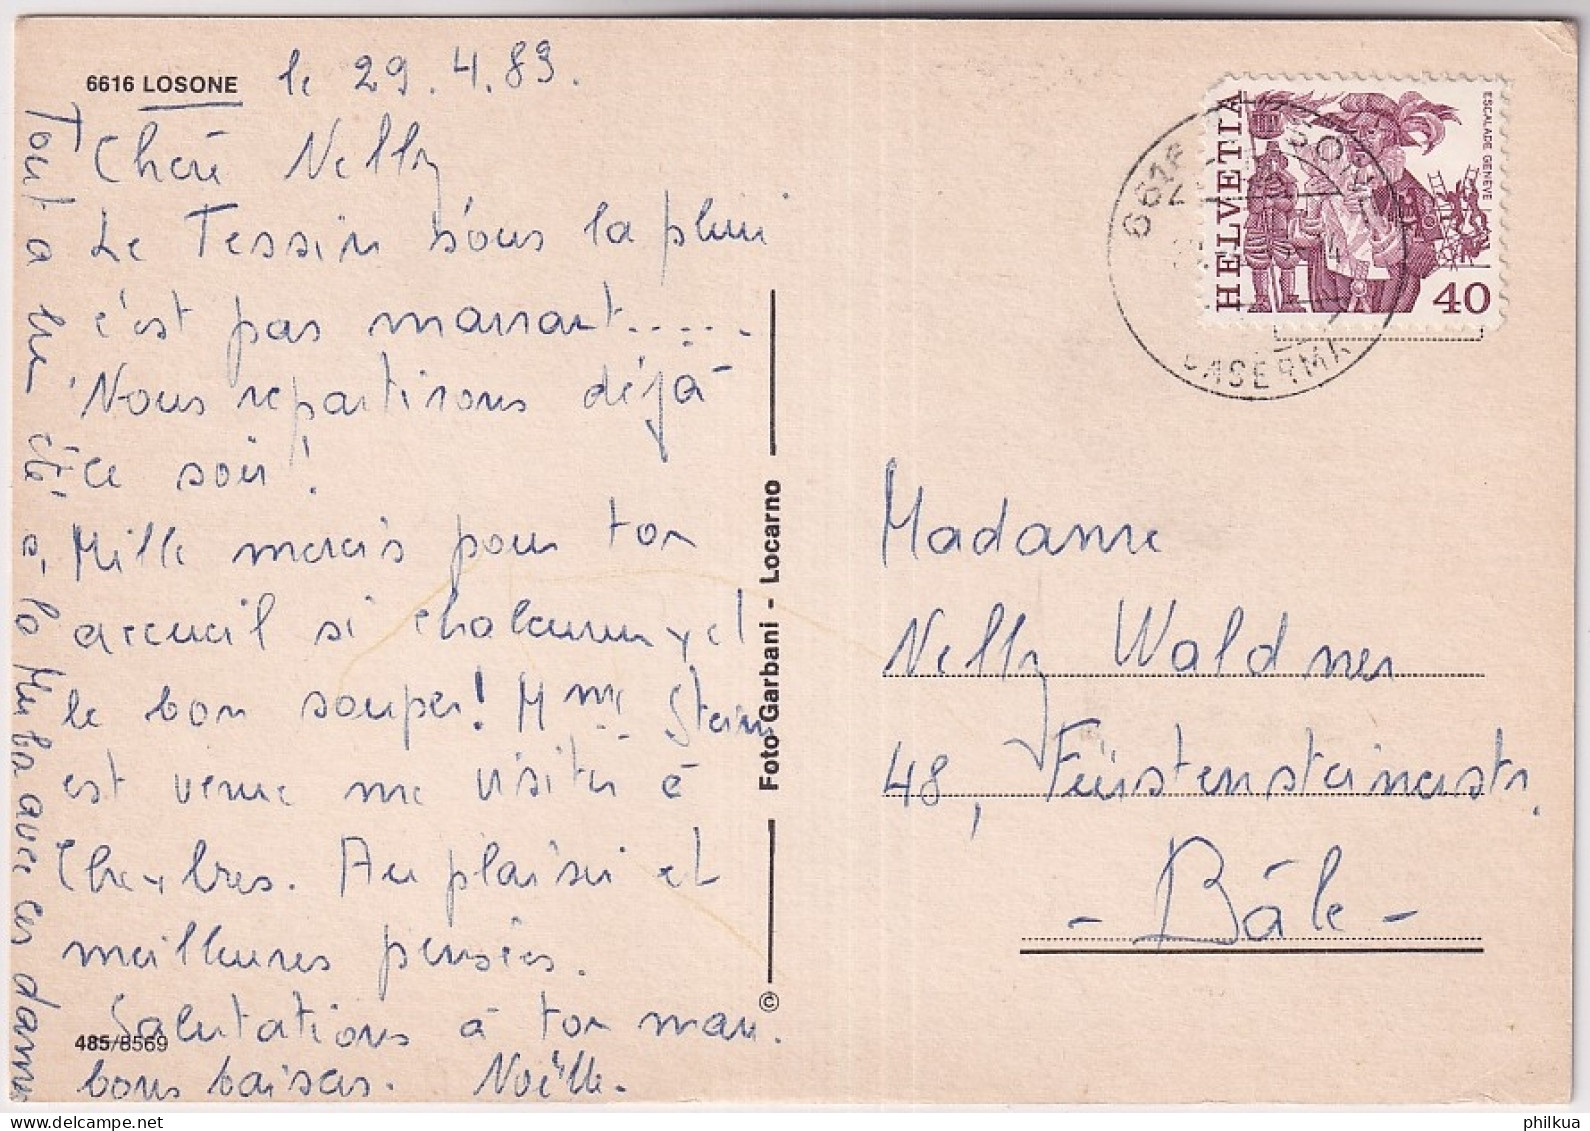 6616 LOSONE
le 29.4.83.
Chère Nelly
Le Tessin sous la pluie
c'est pas marrant.....
Nous repartirons déjà
ce soir!
Mille mercis pour ton
accueil si chaleureux et
le bon souper! Mme Stein
est venue me visiter à
Chexbres. Au plaisir et
meilleures pensées.
Salutations à ton mari.
bons baisers. Noëlle.
Tout a bien été à la Muba avec ces dames
485/8569
Foto Garbani - Locarno
©
HELVETIA
ESCALADE GENÈVE
40
6616 LOSONE
CASERMA
Madame
Nelly Waldner
48, Fürstensteinerstr.
- Bâle -
philkua.com